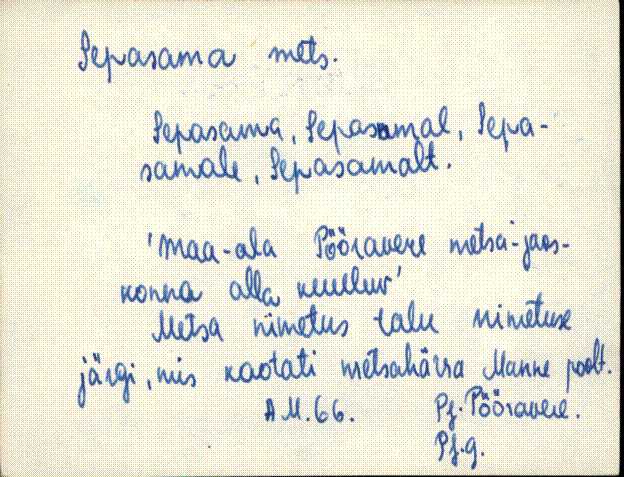 Sepasama mets.
Sepasama, Sepasamal, Sepa-
samale, Sepasamalt.
'maa-ala Pööravere metsa-jaos-
konna alla kuuluv'
Metsa nimetus talu nimetuse
järgi, mis kaotati metsahärra Manne poolt.
A M. 66. Pj. Pööravere.
Pj. g.